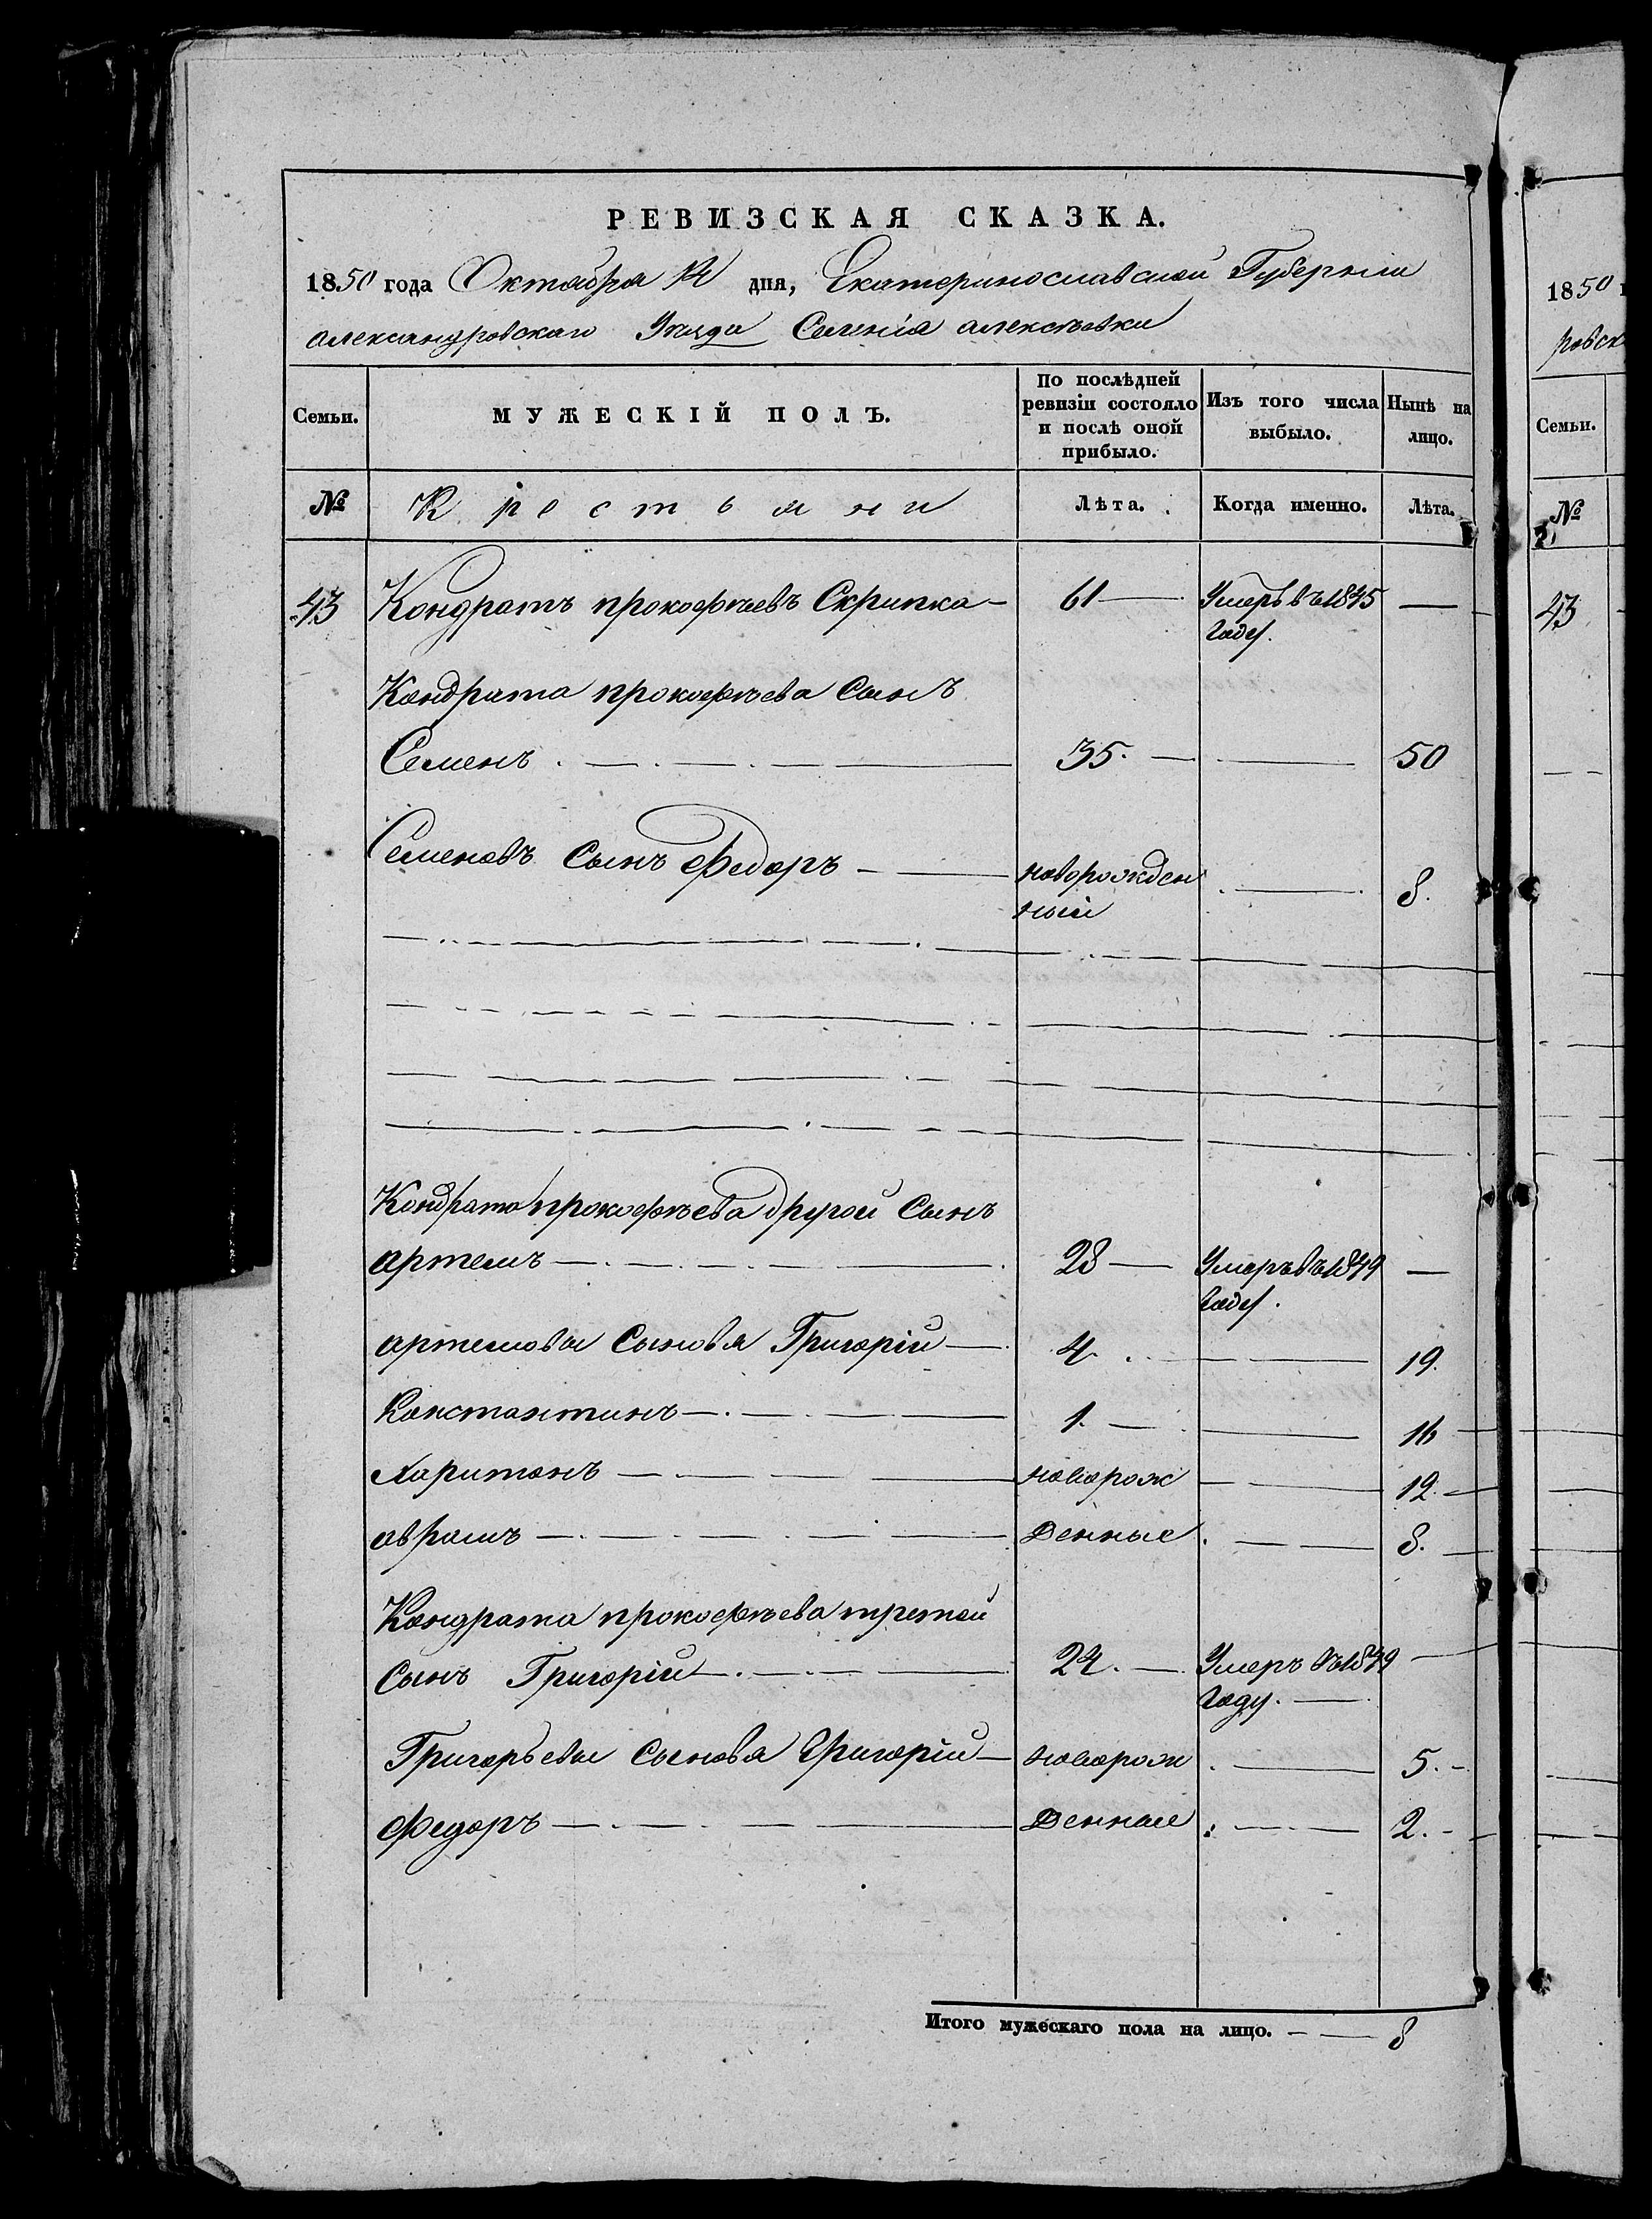 РЕВИЗСКАЯ СКАЗКА.
1850 года Октября 14 дня, Екатеринославской Губерніи
александровскаго Уезда Селенія алексѣевки
Семьи. МУЖЕСКІЙ ПОЛЪ. По послѣдней ревизіи состояло и послѣ оной прибыло. Изъ того числа выбыло. Нынѣ на лицо.
№ Крестьяни Лѣта. Когда именно. Лѣта.
43 Кондратъ прокофьевъ Скрипка 61 Умеръ въ 1845
Году.
Кондрата прокофьева Сынъ
Семенъ 35. 50
Семеновъ Сынъ Федоръ новорожден 8.
ный
Кондрата прокофьева другой Сынъ
артемъ 28 Умеръ въ 1849
Году.
артемовы Сыновя Григорій 4 19.
Константинъ 1. 16
Харитонъ новорож 12.
аврамъ денные 8.
Кондрата прокофьева третей
Сынъ Григорій 24. Умеръ въ 1849
Году.
Григорьевы Сыновя Григорій новорож 5.
Федоръ денные 2.
Итого мужескаго пола на лицо. 8
1850
ровск
Семьи.
№
43